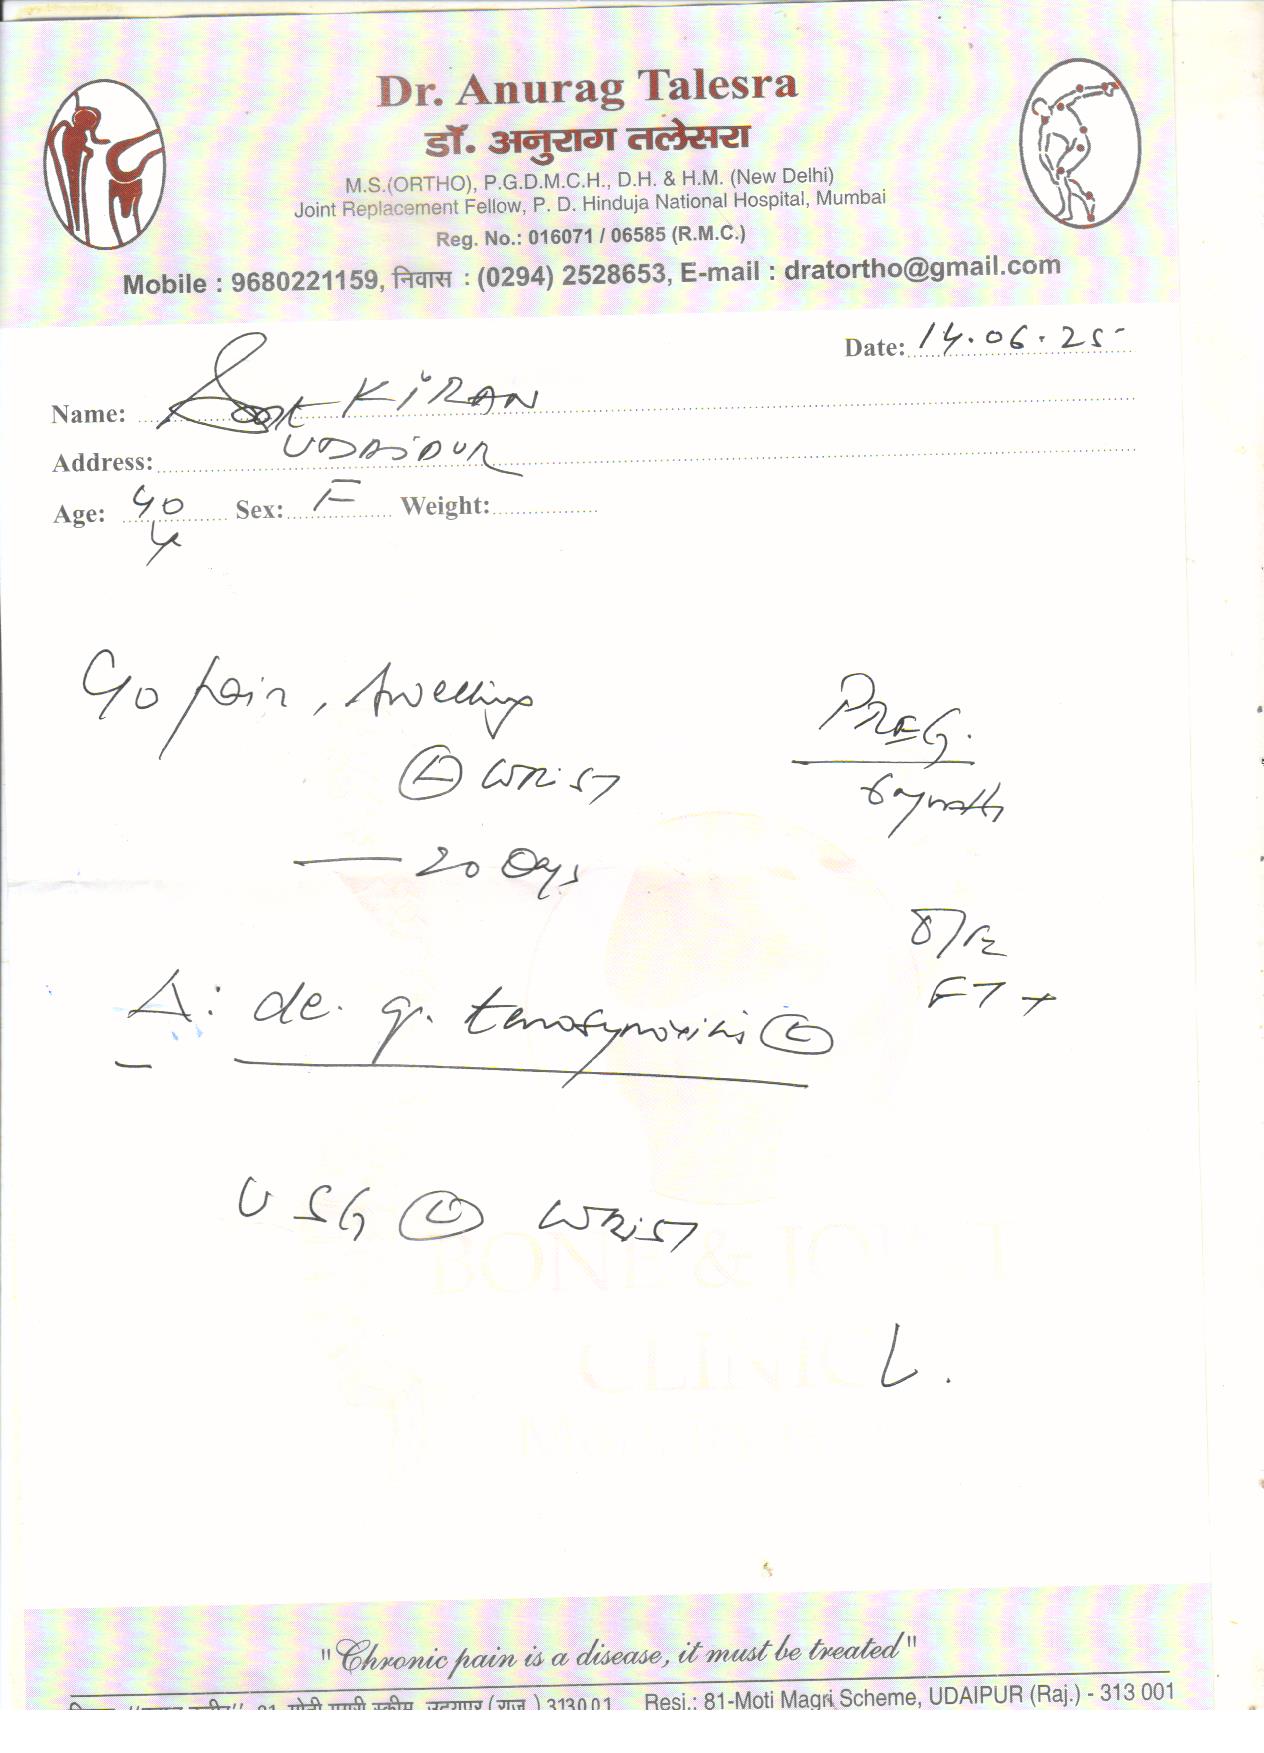 Dr. Anurag Talesra
डॉ. अनुराग तलेसरा
M.S.(ORTHO), P.G.D.M.C.H., D.H. & H.M. (New Delhi)
Joint Replacement Fellow, P. D. Hinduja National Hospital, Mumbai
Reg. No.: 016071 / 06585 (R.M.C.)
Mobile : 9680221159, निवास : (0294) 2528653, E-mail : dratortho@gmail.com
Date: 14.06.25
Name: KIRAN
Address: UDAIPUR
Age: 40 Sex: F Weight:
y
C/o pain, swelling
PREG.
(L) WRIST
— 20 Days
O/E
FT +
Δ: de. q. tenosynovitis (L)
USG (L) WRIST
BONE & JOINT
CLINIC
"Chronic pain is a disease, it must be treated"
313001 Resi.: 81-Moti Magri Scheme, UDAIPUR (Raj.) - 313 001